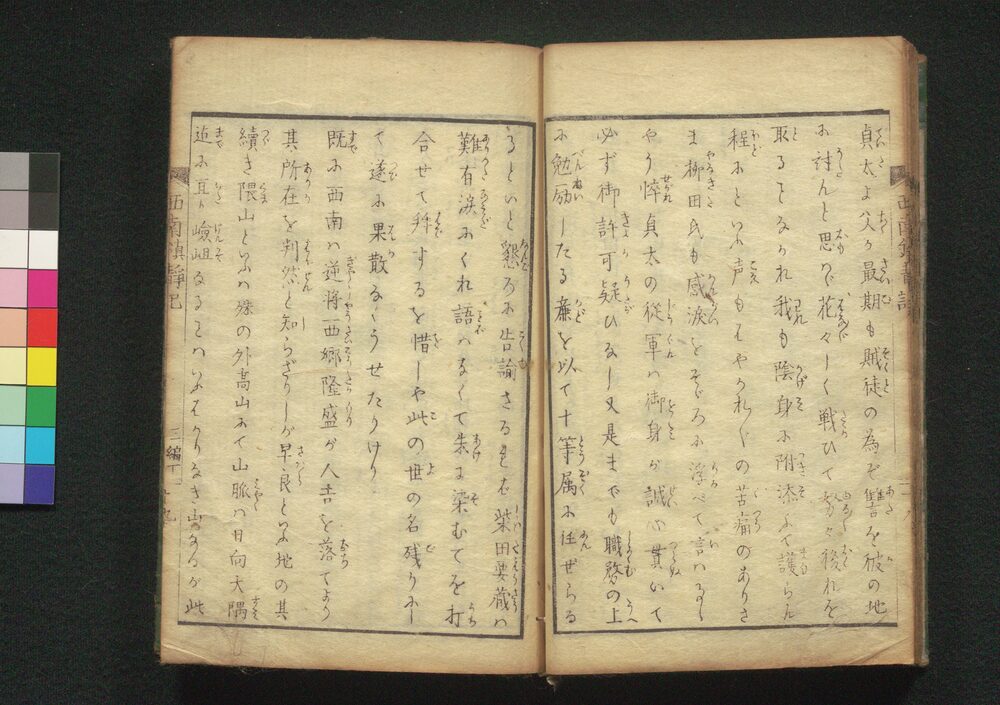 貞太よ父が最期も賊徒の為ぞ讐を彼の地
に討んと思はゞ花々しく戦ひて努々後れを
取ることなかれ我も陰身に附添ふて護らん
程にといふ声もはやかれ〴〵の苦痛のありさ
ま柳田氏も感涙をそゞろに浮べて言はるゝ
やう悴貞太の従軍ハ御身が誠心貫いて
必ず御許可疑ひなし又是までも職務の上
に勉励したる廉を以て十等属に任ぜらる
るといと懇ろに告諭さるれば柴田要蔵ハ
難有涙にくれ語ハなくて朱に染むてを打
合せて拝するを惜しや此の世の名残りにし
て遂に果敢なくうせたりけり
既に西南ハ逆将西郷隆盛が人吉を落てより
其所在を判然と知らざりしが早良といふ地の其
続き隈山といふハ殊の外高山にて山脈ハ日向大隅
迄に亘り嶮岨なることハいふばかりなき山なるが此
西南鎮静記
三編下